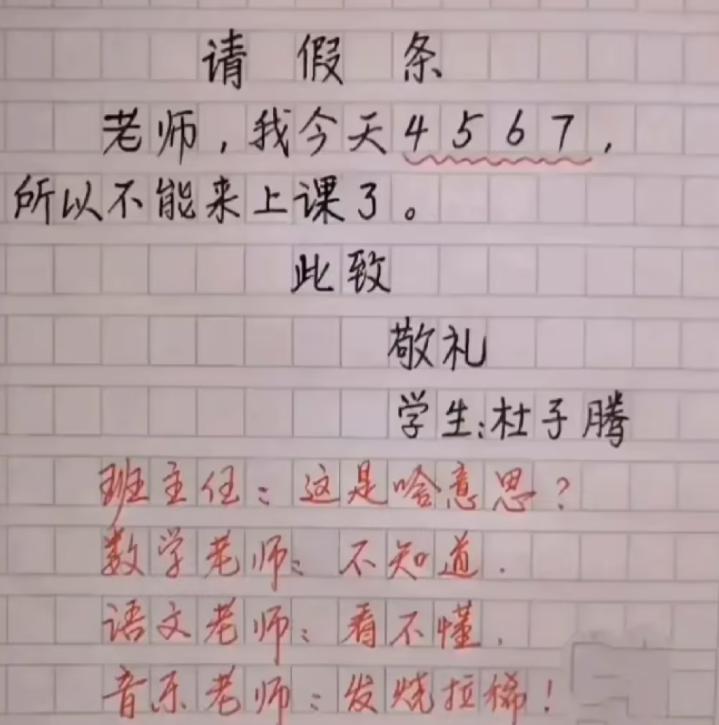 请假条
老师，我今天4567，
所以不能来上课了。
此致
敬礼
学生：杜子腾
班主任：这是啥意思？
数学老师：不知道.
语文老师：看不懂.
音乐老师：发烧拉稀！